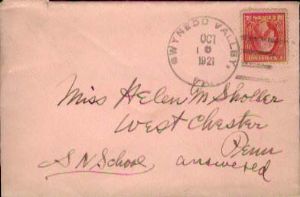 GWYNEDD VALLEY,
OCT
1921
Miss Helen M Sholler
West Chester
Penn
S N School
answered